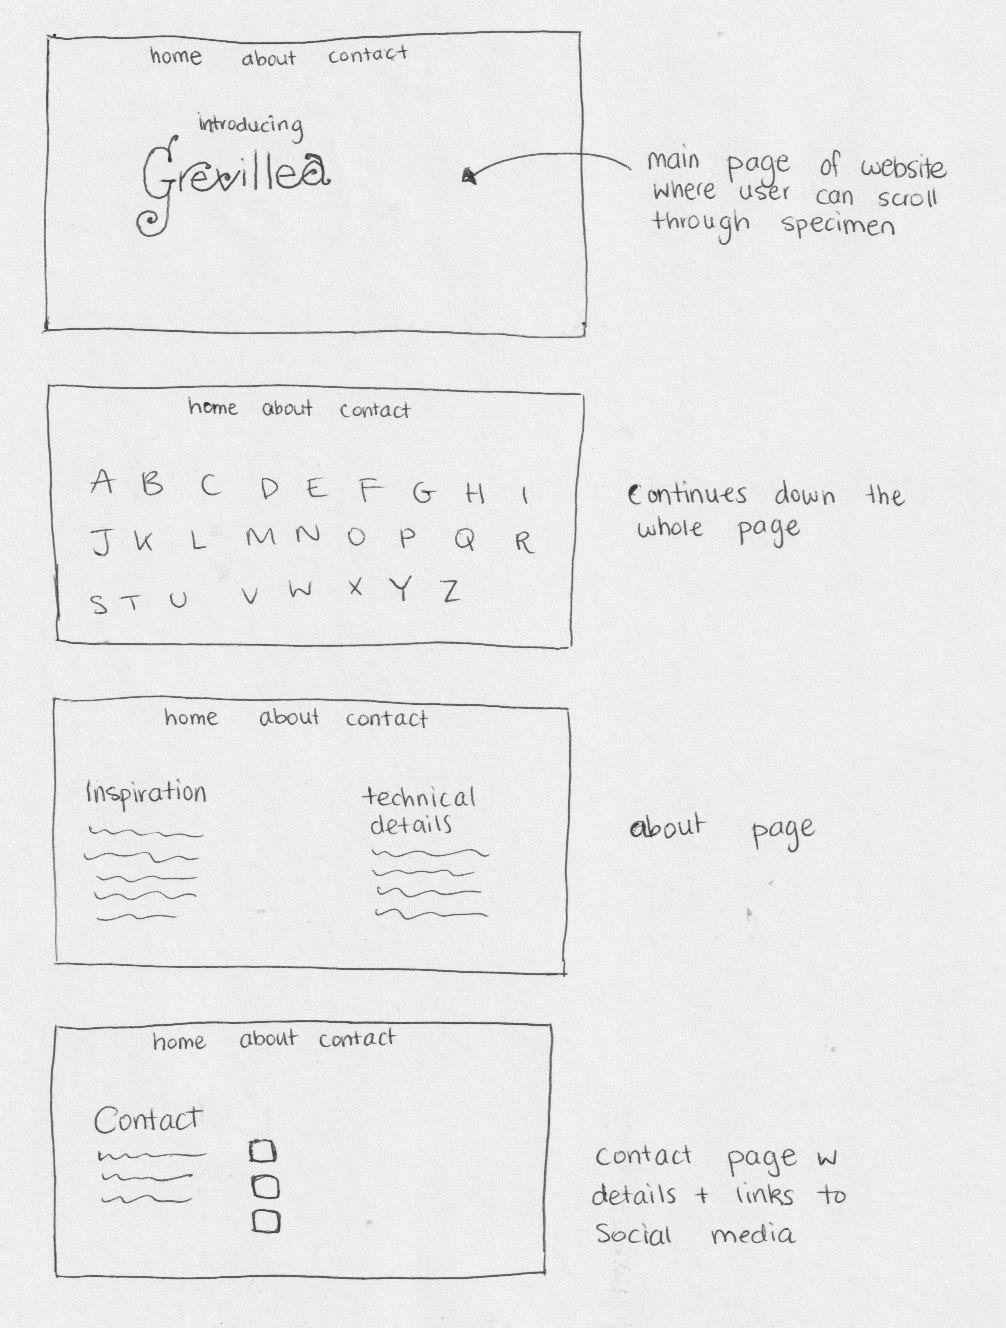 home about contact
introducing
Grevillea
main page of website
where user can scroll
through specimen
home about contact
A B C D E F G H I
J K L M N O P Q R
S T U V W X Y Z
continues down the
whole page
home about contact
Inspiration
technical
details
about page
home about contact
Contact
contact page w
details + links to
Social media